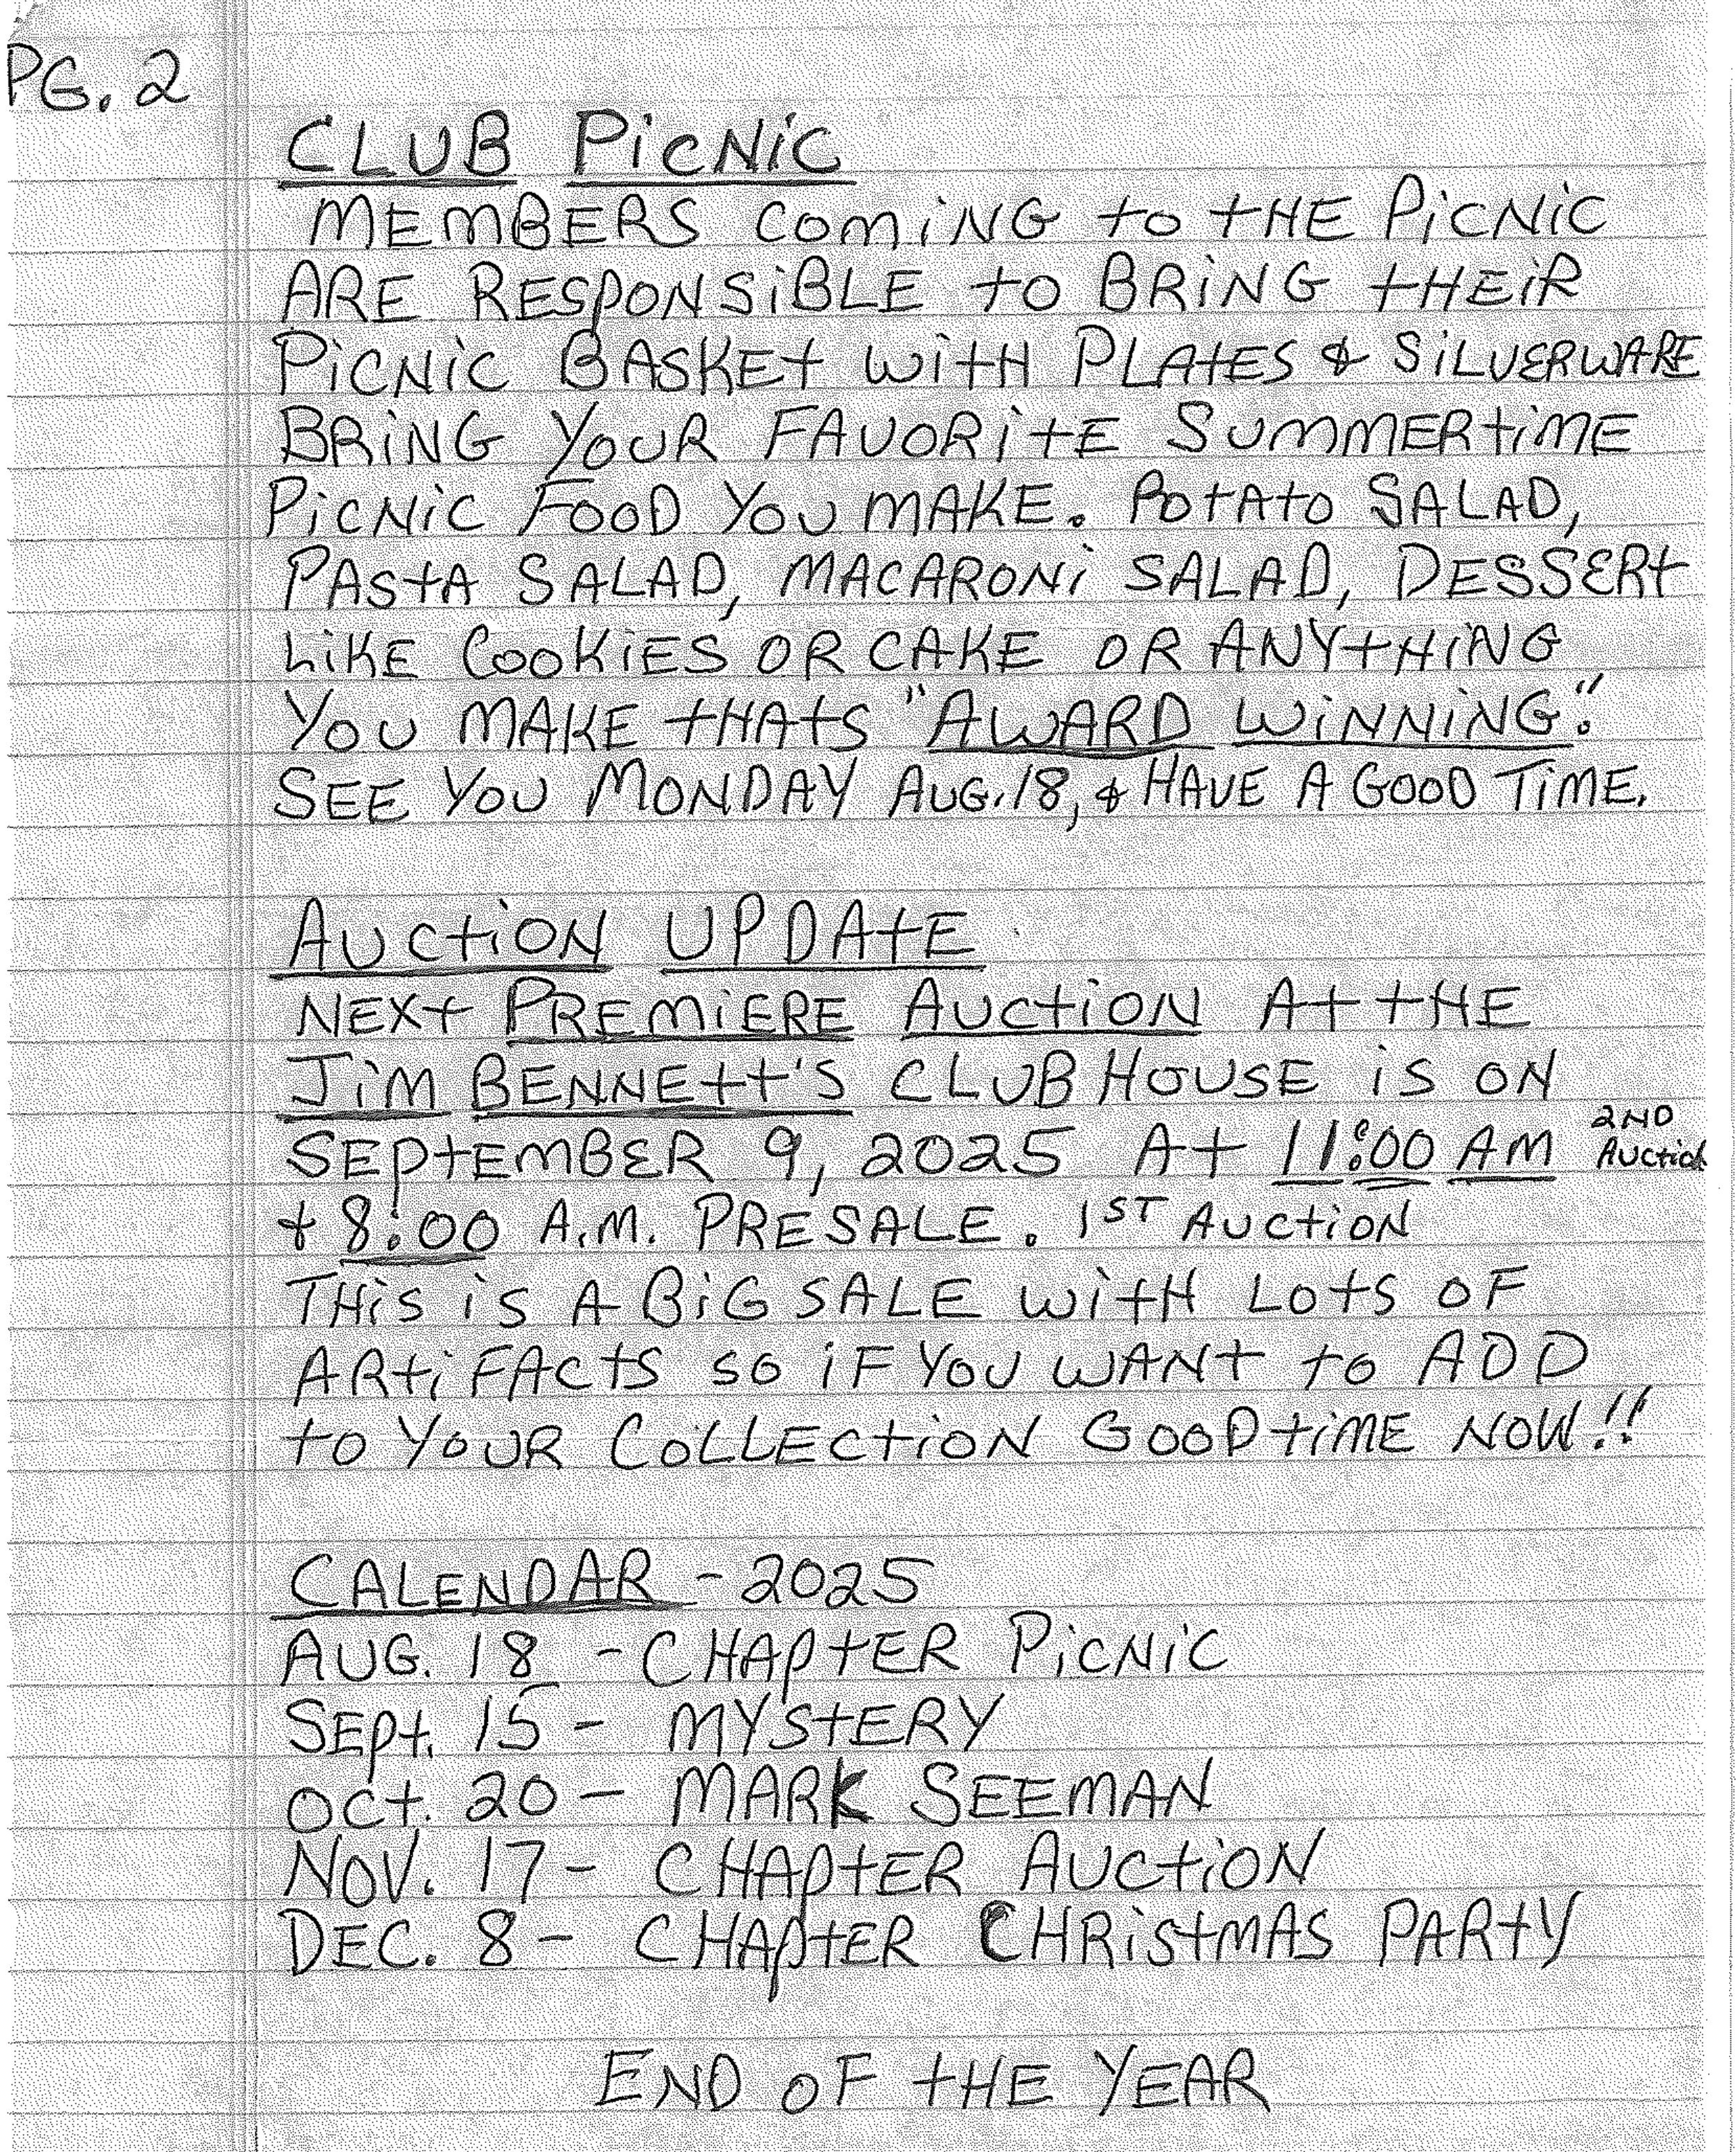 PG. 2
CLUB PiCNiC
MEMBERS COMiNG to tHE PiCNiC
ARE RESPONSiBLE to BRiNG tHEiR
PiCNiC BASKEt WitH PLAtES & SiLVERWARE
BRiNG YOUR FAVORitE SUMMERtiME
PiCNiC FOOD YOU MAKE. POtAtO SALAD,
PAStA SALAD, MACARONi SALAD, DESSERt
LiKE COOKiES OR CAKE OR ANYtHiNG
YOU MAKE tHAtS "AWARD WiNNiNG."
SEE YOU MONDAY AUG. 18, & HAVE A GOOD TiME.
AUCtiON UPDAtE
NEXt PREMiERE AUCtiON At tHE
JiM BENNEtt'S CLUB HOUSE iS ON
SEPtEMBER 9, 2025 At 11:00 AM 2ND AUCtiON
+ 8:00 A.M. PRESALE. 1ST AUCtiON
THiS iS A BiG SALE WitH LOtS OF
ARtiFACtS SO iF YOU WANt to ADD
to YOUR COLLECtiON GOOD tiME NOW!!
CALENDAR - 2025
AUG. 18 - CHAPtER PiCNiC
SEPt. 15 - MYStERY
OCt. 20 - MARK SEEMAN
NOV. 17 - CHAPtER AUCtiON
DEC. 8 - CHAPtER CHRiStMAS PARtY
END OF tHE YEAR